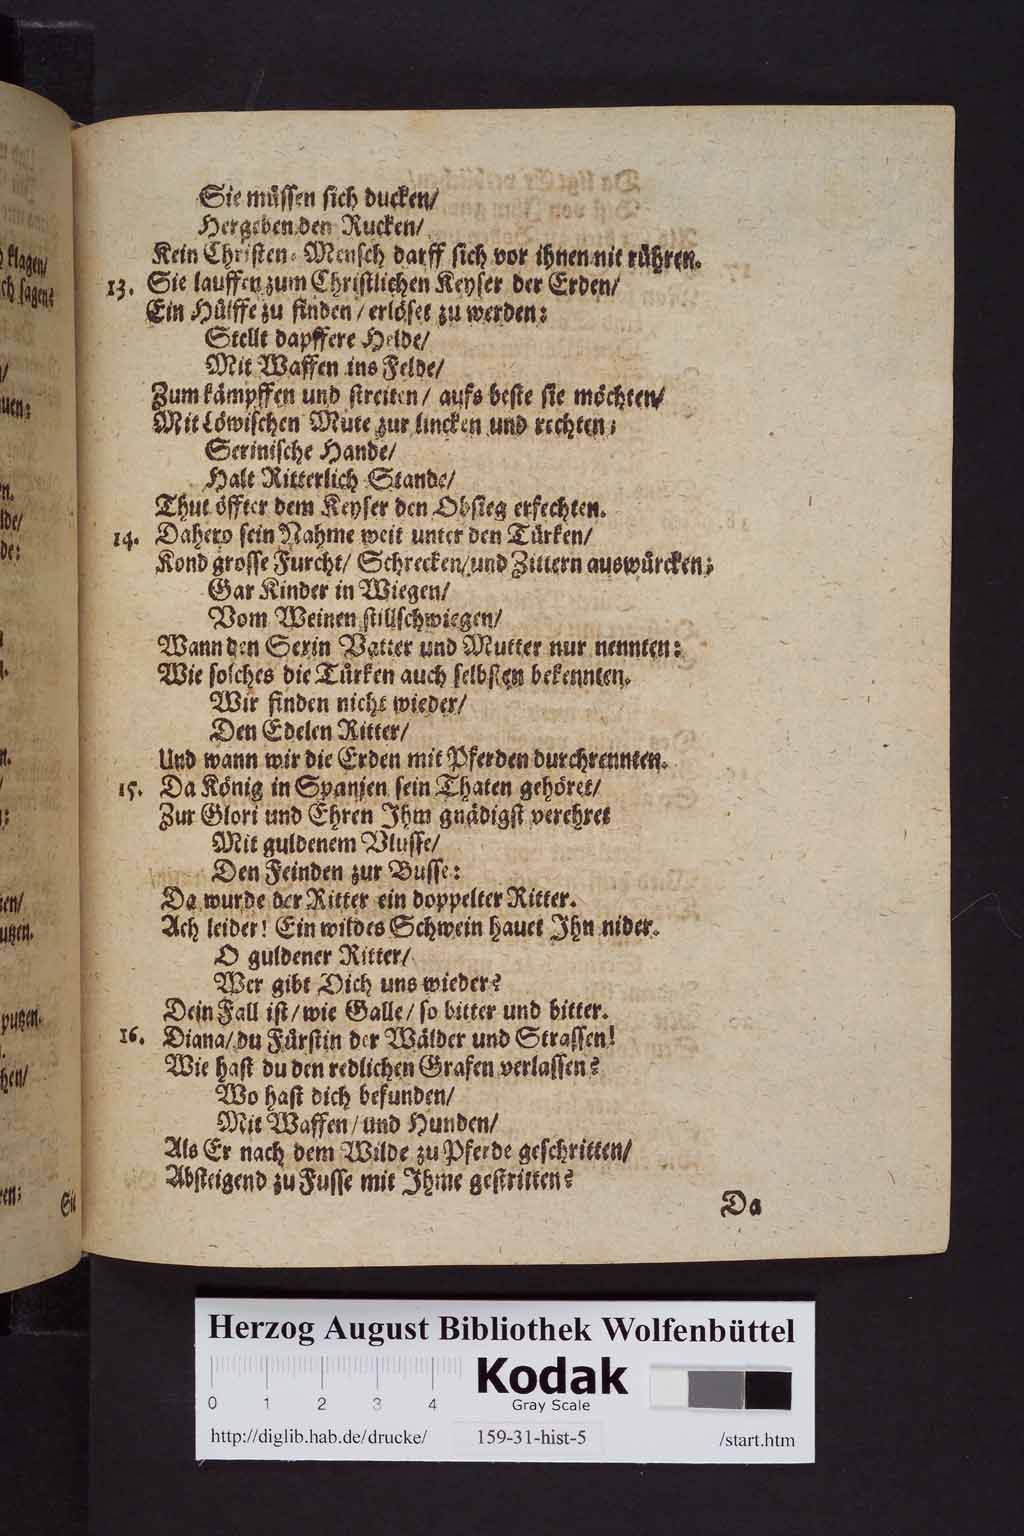 Sie müssen sich ducken/
Hergeben den Rucken/
Kein Christen-Mensch darff sich vor ihnen nit rühren.
13. Sie lauffen zum Christlichen Keyser der Erden/
Ein Hülffe zu finden/ erlöset zu werden:
Stellt dapffere Helde/
Mit Waffen ins Felde/
Zum kämpffen und streiten/ aufs beste sie möchten/
Mit Löwischen Mute zur lincken und rechten;
Serinische Hande/
Halt Ritterlich Stande/
Thut öffter dem Keyser den Obsieg erfechten.
14. Dahero sein Nahme weit unter den Türken/
Kond grosse Furcht/ Schrecken/ und Zittern auswürcken;
Gar Kinder in Wiegen/
Vom Weinen stillschwiegen/
Wann den Serin Vatter und Mutter nur nennten:
Wie solches die Türken auch selbsten bekennten.
Wir finden nicht wieder/
Den Edelen Ritter/
Und wann wir die Erden mit Pferden durchrennten.
15. Da König in Spanien sein Thaten gehöret/
Zur Glori und Ehren Ihm gnädigst verehret
Mit guldenem Vlusse/
Den Feinden zur Busse:
Da wurde der Ritter ein doppelter Ritter.
Ach leider! Ein wildes Schwein hauet Ihn nider.
O guldener Ritter/
Wer gibt Dich uns wieder?
Dein Fall ist/ wie Galle/ so bitter und bitter.
16. Diana/ du Fürstin der Wälder und Strassen!
Wie hast du den redlichen Grafen verlassen?
Wo hast dich befunden/
Mit Waffen/ und Hunden/
Als Er nach dem Wilde zu Pferde geschritten/
Absteigend zu Fusse mit Ihme gestritten?
Da
Herzog August Bibliothek Wolfenbüttel
0 1 2 3 4
Kodak
Gray Scale
http://diglib.hab.de/drucke/ 159-31-hist-5 /start.htm